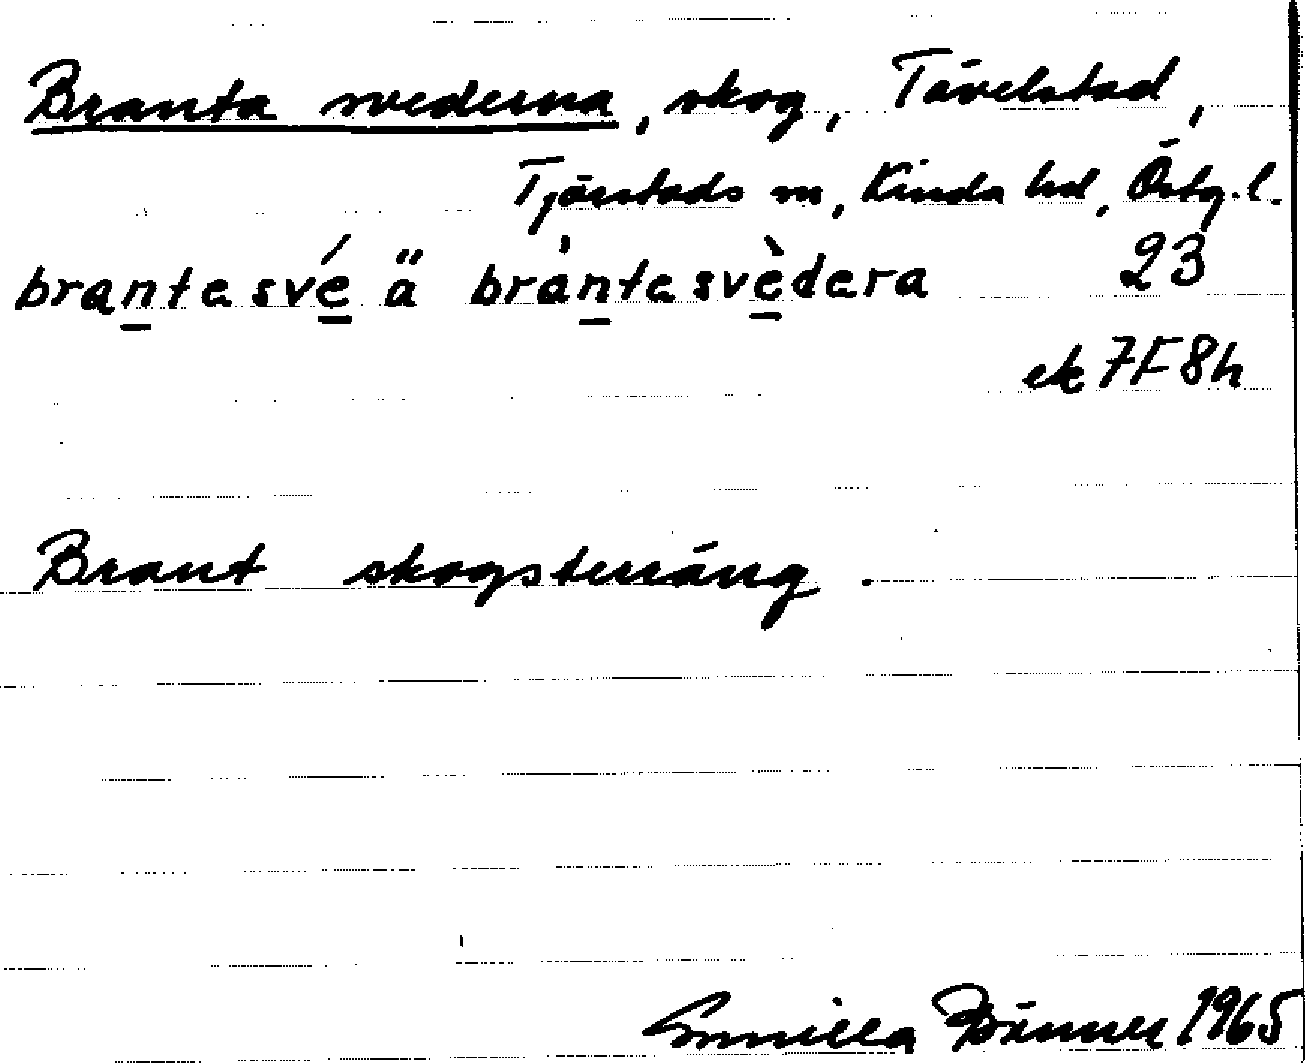 Branta svederna, skog, Tåvelstad,
Tjärstads sn, Kinda hd, Östg.l.
brantesvé ä bràntesvèdera 23
ek 7F8h
Brant skogsterräng.
Gunilla 1965